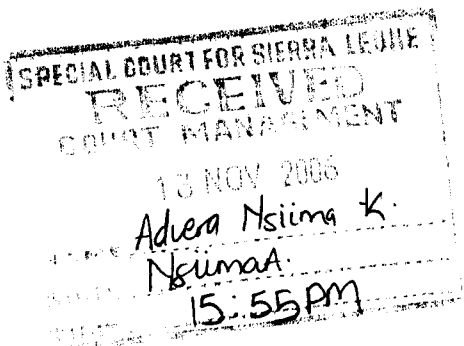 SPECIAL COURT FOR SIERRA LEONE
RECEIVED
COURT MANAGEMENT
13 NOV 2006
NAME Advera Nsiima K.
SIGN NsiimaA.
TIME 15:55PM